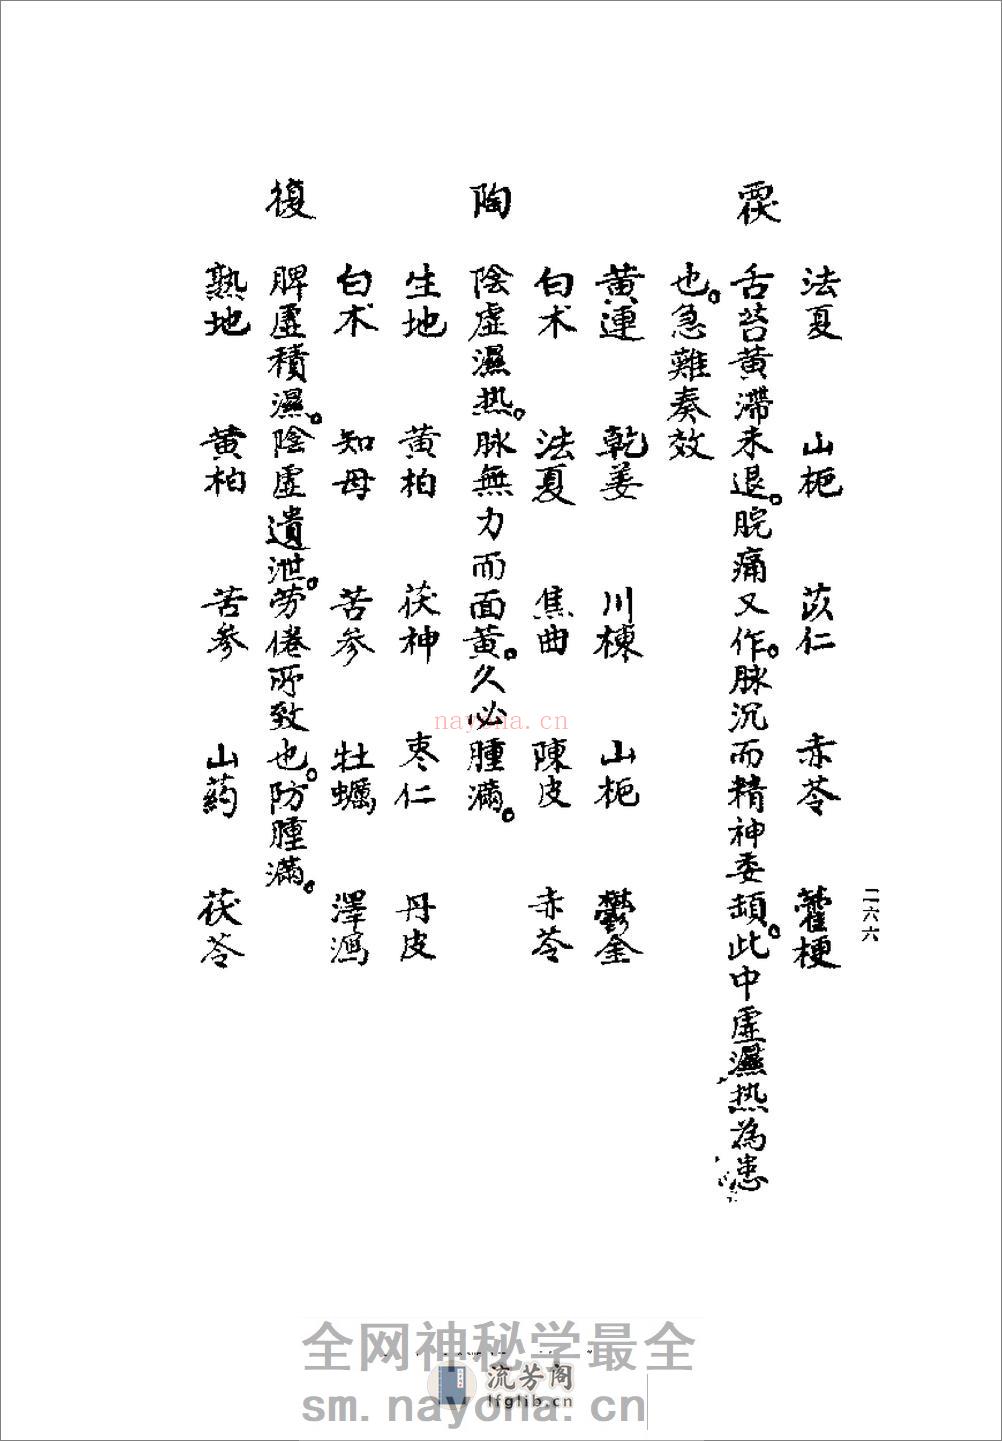 法夏 山栀 苡仁 赤苓 藿梗
覆 舌苔黄滯未退。脘痛又作。脉沉而精神委頓。此中虛濕热為患
也。急難奏效
黄連 乾姜 川楝 山栀 鬱金
白术 法夏 焦曲 陳皮 赤苓
陶 陰虛濕热。脉無力而面黄。久必腫滿。
生地 黄柏 茯神 枣仁 丹皮
白术 知母 苦参 牡蠣 澤瀉
復 脾虛積濕。陰虛遺泄。劳倦所致也。防腫滿。
熟地 黄柏 苦参 山药 茯苓
二六六
nayona.cn
全网神秘学最全
流芳阁
lfglib.cn
sm.nayona.cn